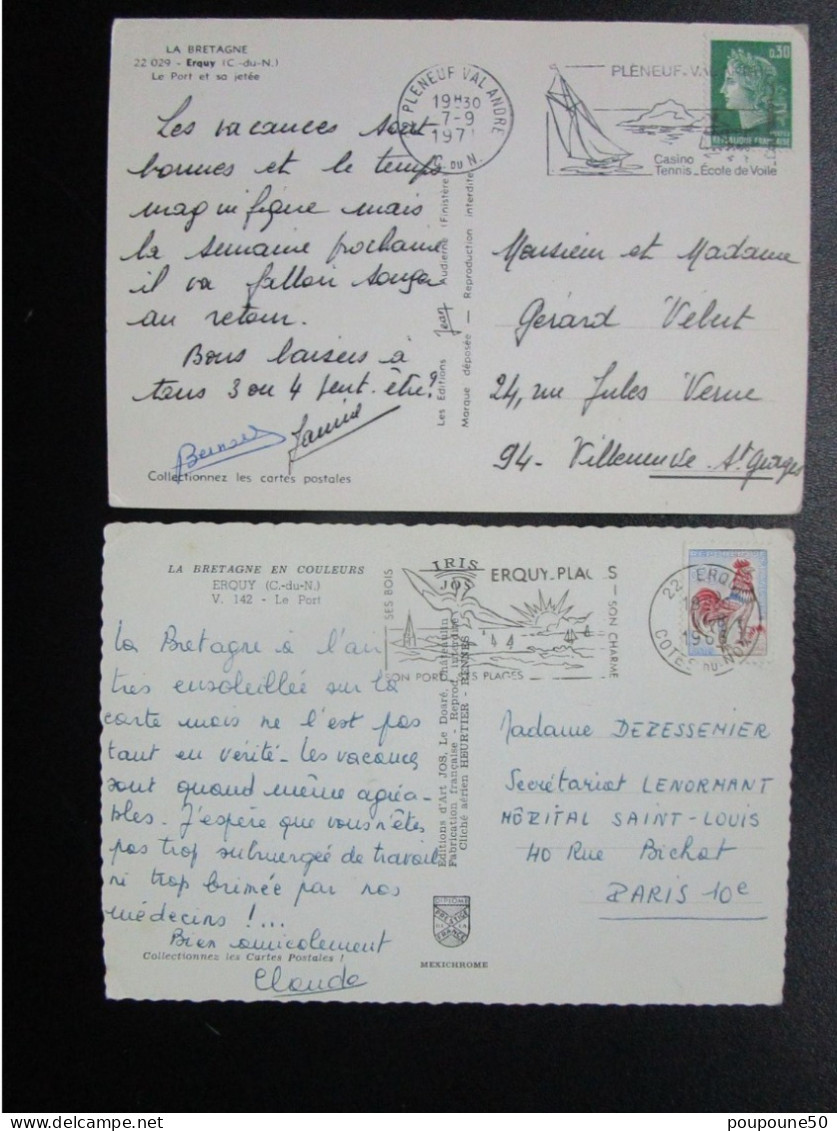 LA BRETAGNE
22 029 - Erquy (C.-du-N.)
Le Port et sa jetée
Les vacances sont
bonnes et le temps
magnifique mais
la semaine prochaine
il va falloir songer
au retour.
Bons baisers à
tous 3 ou 4 peut-être?
Bernard
Janine
Collectionnez les cartes postales
Les Editions Jean Audierne (Finistère)
Marque déposée — Reproduction interdite
PLENEUF VAL ANDRE
19H30
7-9
1971
C. DU N.
PLENEUF. V
Casino
Tennis_École de Voile
0,30
REPUBLIQUE FRANÇAISE
Monsieur et Madame
Gérard Vébert
24, rue Jules Verne
94- Villeneuve St Georges
LA BRETAGNE EN COULEURS
ERQUY (C.-du-N.)
V. 142 - Le Port
La Bretagne a l'air
très ensoleillée sur la
carte mais ne l'est pas
tant en vérité. Les vacances
sont quand même agréa-
bles. J'espère que vous n'êtes
pas trop submergée de travail
ni trop brimée par nos
médecins !...
Bien amicalement
Claude
Collectionnez les Cartes Postales !
IRIS
JOS
Editions d'Art JOS, Le Doaré, Châteaulin
Fabrication française - Reprod. interdite
Cliché aérien HEURTIER - RENNES
DIPLOME
PRESTIGE
DE LA
FRANCE
MEXICHROME
SES BOIS
ERQUY_PLAGES
SON CHARME
SON PORT SES PLAGES
22 ERQUY
18
196
COTES DU NORD
Madame DEZESSEMIER
Secrétariat LENORMANT
HÔPITAL SAINT-LOUIS
40 Rue Bichat
PARIS 10e
http://poupoune50.delcampe.net